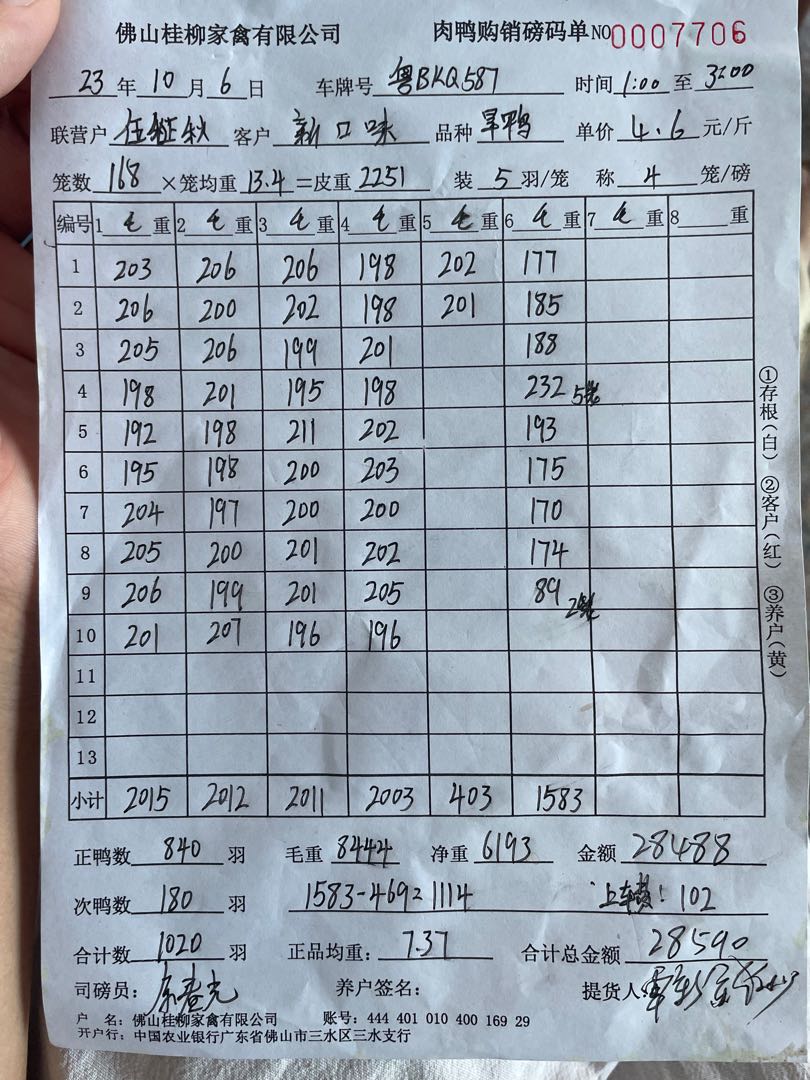 佛山桂柳家禽有限公司 肉鸭购销磅码单 NO 0007706
23 年 10 月 6 日 车牌号 粤BKQ587 时间 1:00 至 3:00
联营户 伍钲秋 客户 新口味 品种 旱鸭 单价 4.6 元/斤
笼数 168 ×笼均重 13.4 =皮重 2251 装 5 羽/笼 称 4 笼/磅
编号 1 毛 重 2 毛 重 3 毛 重 4 毛 重 5 毛 重 6 毛 重 7 毛 重 8 重
1 203 206 206 198 202 177
2 206 200 202 198 201 185
3 205 206 199 201 188
4 198 201 195 198 232 5笼
5 192 198 211 202 193
6 195 198 200 203 175
7 204 197 200 200 170
8 205 200 201 202 174
9 206 199 201 205 89 2笼
10 201 207 196 196
11
12
13
小计 2015 2012 2011 2003 403 1583
正鸭数 840 羽 毛重 8444 净重 6193 金额 28488
次鸭数 180 羽 1583-469=1114 上车费: 102
合计数 1020 羽 正品均重: 7.37 合计总金额 28590
司磅员: 养户签名: 提货人:
户 名: 佛山桂柳家禽有限公司 账号: 444 401 010 400 169 29
开户行: 中国农业银行广东省佛山市三水区三水支行
①存根(白) ②客户(红) ③养户(黄)